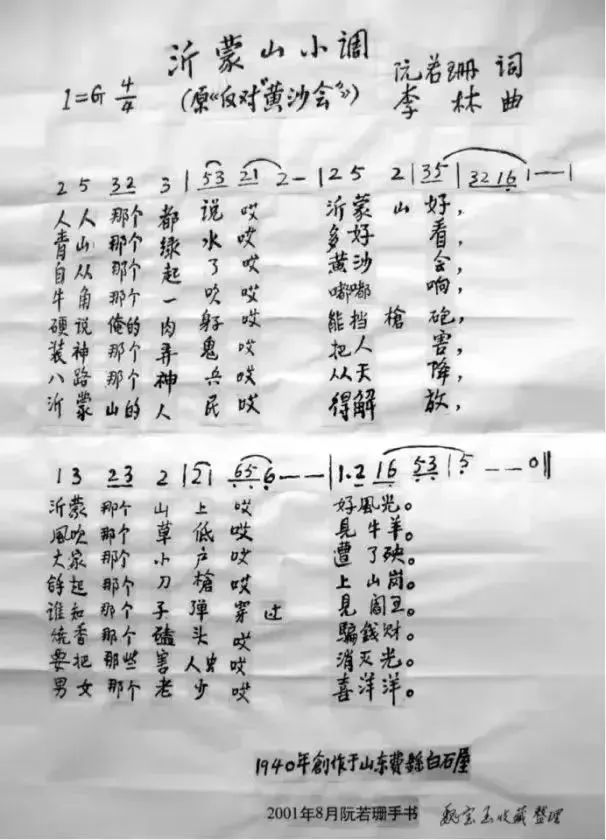 沂蒙山小调
阮若珊 词
1=G 4/4 (原《反对"黄沙会"》) 李林 曲
2 5 32 3 | 53 21 2 – | 2 5 2 | 35 | 32 16 1 – – |
人人那个都说哎 沂蒙山好,
青山那个绿水哎 多好看,
自从那个起了哎 黄沙会,
牛角那个一吹哎 嘟嘟响,
硬说俺的肉身哎 能挡枪砲,
装神那个弄鬼哎 把人害,
八路那个神兵哎 从天降,
沂蒙山的人民哎 得解放,
1 3 23 2 | 21 65 6 – – | 1·2 16 53 | 5 – – 0 ‖
沂蒙那个山上哎 好風光。
風吹那个草低哎 見牛羊。
大家那个小户哎 遭了殃。
餘起那个刀槍哎 上山崗。
谁知那个子弹穿过 見阎王。
烧香那个磕头哎 騙錢财。
要把那些害人虫哎 消灭光。
男女那个老少哎 喜洋洋。
1940年創作于山东費縣白石屋
2001年8月阮若珊手书
魏宝玉收藏 整理